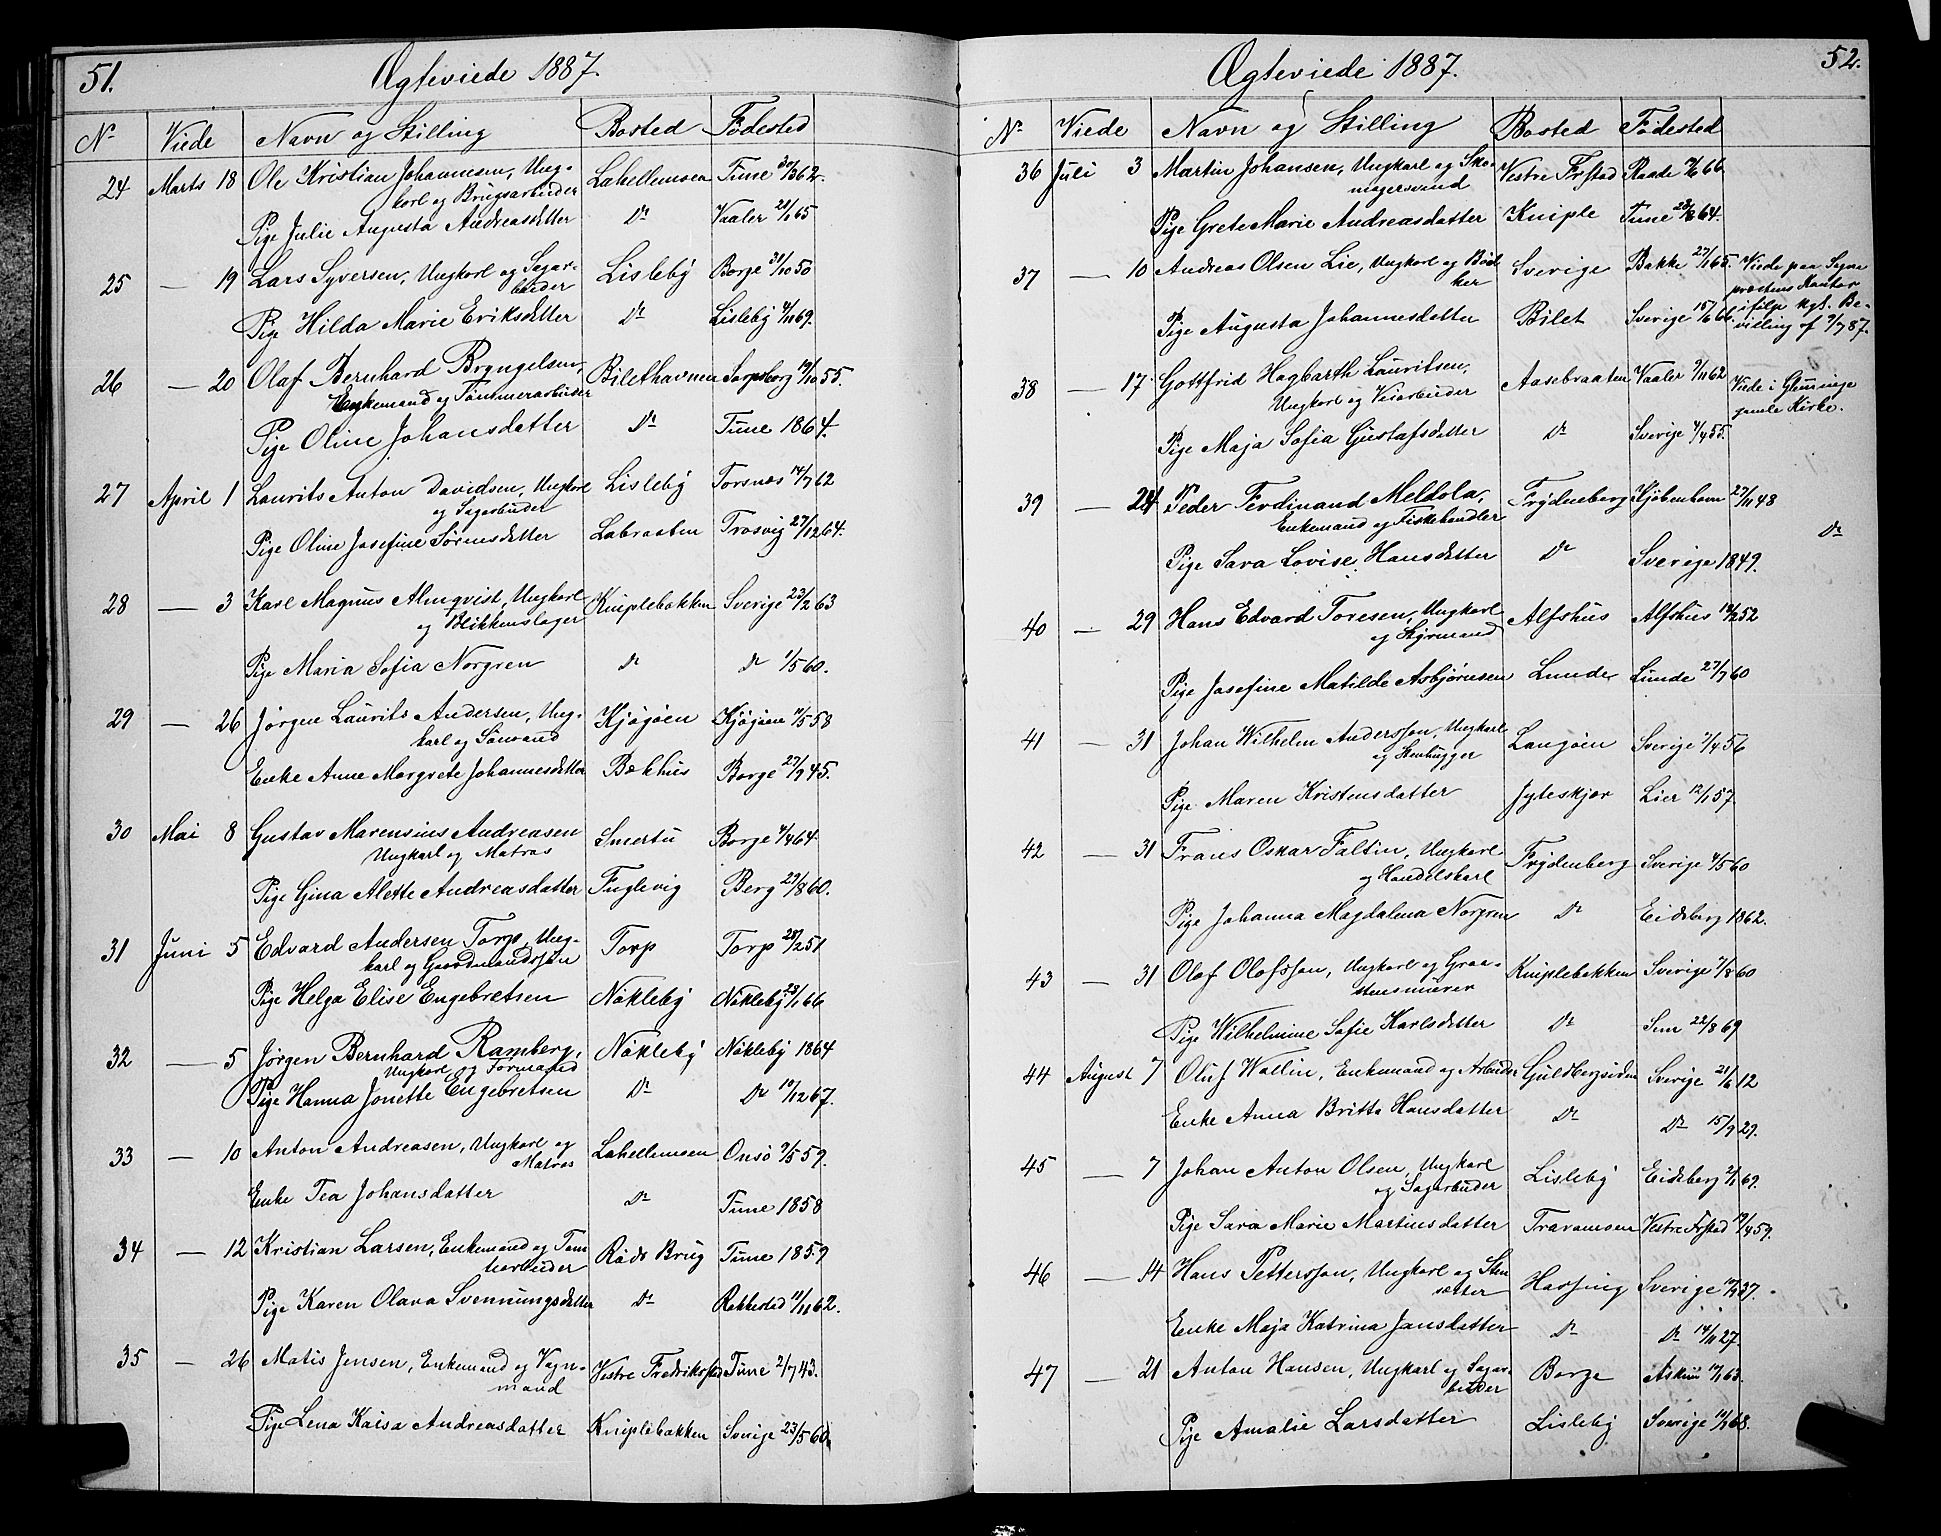 51.
Ægteviede 1887.
No Viede Navn og Stilling Bosted Fødested
24 Marts 18 Ole Kristian Johannesen, Ung- Lahellemoen Tune 30/3 62.
karl og Brugsarbeider
Pige Julie Augusta Andreasdatter Do Vaaler 21/1 65
25 — 19 Lars Syversen, Ungkarl og Sagar- Lisleby Borge 31/10 50
beider
Pige Hilda Marie Eriksdatter Do Lisleby 4/11 69.
26 — 20 Olaf Bernhard Bryngelsen, Bilethavnen Sarpsborg 19/10 55.
Enkemand og Tømmerarbeider
Pige Oline Johansdatter Do Tune 1864.
27 April 1 Laurits Anton Davidsen, Ungkarl Lisleby Torsnæs 14/7 62
og Sagarbeider
Pige Oline Josefine Sørensdatter Labraaten Trosvig 27/12 64.
28 — 3 Karl Magnus Almqvist, Ungkarl Kniplebakken Sverige 23/2 63
og Blikkenslager
Pige Maria Sofia Norgren Do Do 1/5 60.
29 — 26 Jørgen Laurits Andersen, Ung- Kjøgøen Kjøgøen 11/5 58
karl og Sømand
Enke Anne Margrete Johannesdatter Bækhus Borge 27/9 45.
30 Mai 8 Gustav Marensius Andreasen Smertu Borge 4/4 64.
Ungkarl og Matros
Pige Gina Alette Andreasdatter Fuglevig Berg 29/8 60.
31 Juni 5 Edvard Andersen Torp, Ung- Torp Torp 28/2 51
karl og Gaardmandssøn
Pige Helga Elise Engebretsen Nøkleby Nøkleby 28/1 66
32 — 5 Jørgen Bernhard Ramberg, Nøkleby Nøkleby 1864
Ungkarl og Formand
Pige Hanna Jonette Engebretsen Do Do 19/12 67.
33 — 10 Anton Andreasen, Ungkarl og Lahellemoen Onsø 9/5 59.
Matros
Enke Tea Johansdatter Do Tune 1858
34 — 12 Kristian Larsen, Enkemand og Tom Røds Brug Tune 1859
tearbeider
Pige Karen Olava Svenningsdatter Do Rakkestad 11/11 62.
35 — 26 Matis Jensen, Enkemand og Vogn- Vestre Fredrikstad Tune 2/7 43.
mand
Pige Lena Kaisa Andreasdatter Kniplebakken Sverige 23/5 60.
52.
Ægteviede 1887.
No Viede Navn og Stilling Bosted Fødested
36 Juli 3 Martin Johansen, Ungkarl og Sko- Vestre Frstad Raade 66
magersvend
Pige Grete Marie Andreasdatter Kniple Tune 23/8 64.
37 — 10 Andreas Olsen Lie, Ungkarl og Bød- Sverige Bakke 27/1 65. Viede paa Sogne
ker præstens Kontor
ifølge kgl. Be-
Pige Augusta Johannesdatter Bilet Sverige 15/6 66. villing af 9/7 87.
38 — 17 Gottfrid Hagbarth Lauritsen, Aasebraaten Vaaler 9/11 62 Viede i Glemminge
Ungkarl og Veiarbeider gamle Kirke.
Pige Maja Sofia Gustafsdatter Do Sverige 4/4 55.
39 — 24 Peder Ferdinand Meldola, Frydenberg Kjøbenhavn 27/11 48
Enkemand og Fiskehandler Do
Pige Sara Lovise Hansdatter Do Sverige 1849.
40 — 29 Hans Edvard Toresen, Ungkarl Alfshus Alfshus 14/2 52
og Styrmand
Pige Josefine Matilde Asbjørnsen Lunde Lunde 27/7 60
41 — 31 Johan Wilhelm Andersson, Ungkarl Langøen Sverige 7/4 56
og Stenhugger
Pige Maren Kristensdatter Jyteskjær Lier 12/1 57
42 — 31 Frans Oskar Faltin, Ungkarl Frydenberg Sverige 4/5 60
og Handelskarl
Pige Johanna Magdalena Norgren Do Eidsberg 1862.
43 — 31 Olof Olofsson, Ungkarl og Graa- Kniplebakken Sverige 7/8 60
stensmurer
Pige Wilhelmine Sofie Karlsdatter Do Sem 22/8 69
44 August 7 Oluf Wallin, Enkemand og Arbeider Guldbergsiden Sverige 21/6 12
Enke Anna Britta Hansdatter Do Do 15/9 29.
45 — 7 Johan Anton Olsen, Ungkarl Lisleby Eidsberg 2/1 69.
og Sagarbeider
Pige Sara Marie Martinsdatter Travamoen Vestre Frstad 19/4 59.
46 — 14 Hans Pettersson, Ungkarl og Sten Hassing Sverige 37.
sætter
Enke Maja Katrina Jansdatter Do Do 14/11 27.
47 — 21 Anton Hansen, Ungkarl og Sagar- Borge Askim 63.
beider
Pige Amalie Larsdatter Lisleby Sverige 68.